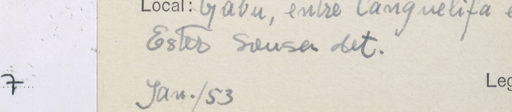 Local: Gabu, entre Canquelifa e
Ester Sousa det.
7
Jan./53
Leg